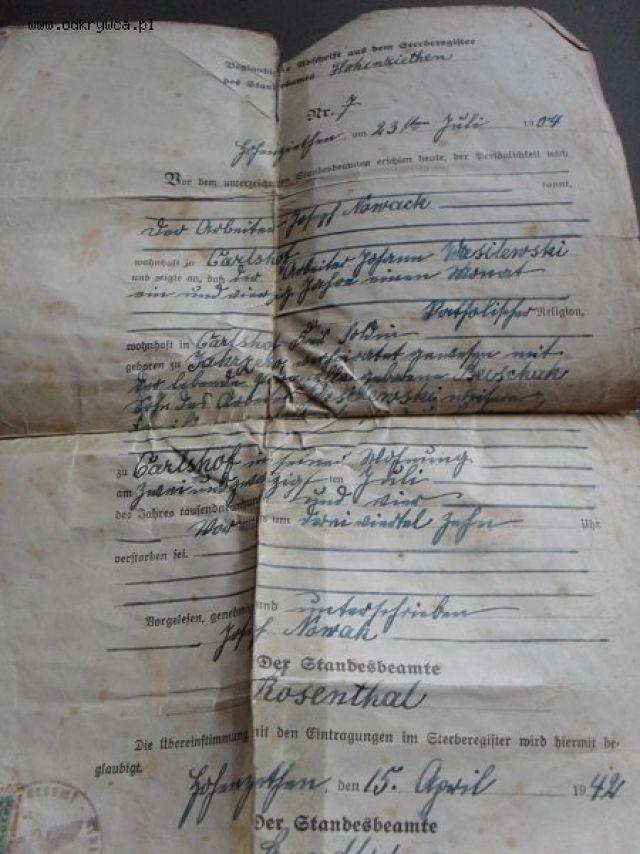 www.odkrywca.pl
Beglaubigte Abschrift aus dem Sterberegister
des Standesamts Hohenziethen
Nr. 7
Hohenziethen, am 23ten Juli 1904
Vor dem unterzeichneten Standesbeamten erschien heute, der Persönlichkeit nach
kannt,
der Arbeiter Josef Nowack
wohnhaft zu Carlshof
und zeigte an, daß der Arbeiter Johann Wasilewski
ein und vierzig Jahre einen Monat
Katholischer Religion,
wohnhaft in Carlshof Kreis Soldin
geboren zu verheiratet gewesen mit
der lebende geborene
Sohn des Wasilewski
zu Carlshof in seiner Wohnung
am zwei und zwanzigsten Juli
des Jahres tausendneunhundert und vier
Vormittags um drei viertel zehn Uhr
verstorben sei.
Vorgelesen, genehmigt und unterschrieben
Josef Nowak
Der Standesbeamte
Rosenthal
Die Übereinstimmung mit den Eintragungen im Sterberegister wird hiermit be-
glaubigt.
Hohenziethen, den 15. April 1942
Der Standesbeamte